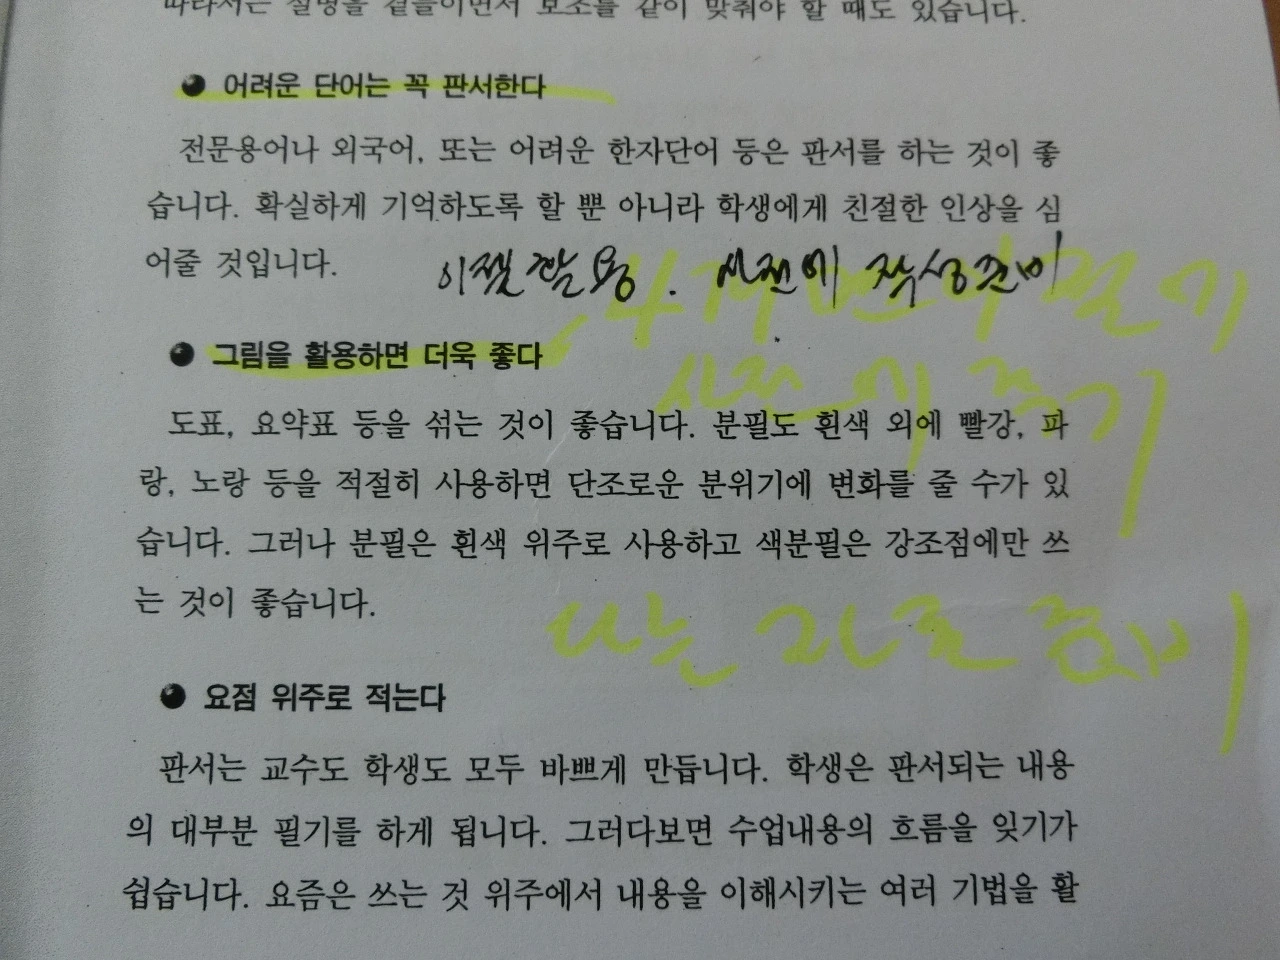 따라서는 설명을 곁들이면서 보조를 같이 맞춰야 할 때도 있습니다.
● 어려운 단어는 꼭 판서한다
전문용어나 외국어, 또는 어려운 한자단어 등은 판서를 하는 것이 좋
습니다. 확실하게 기억하도록 할 뿐 아니라 학생에게 친절한 인상을 심
어줄 것입니다.
이젤활용. 사전에 작성준비
필기
사전에 주기
● 그림을 활용하면 더욱 좋다
도표, 요약표 등을 섞는 것이 좋습니다. 분필도 흰색 외에 빨강, 파
랑, 노랑 등을 적절히 사용하면 단조로운 분위기에 변화를 줄 수가 있
습니다. 그러나 분필은 흰색 위주로 사용하고 색분필은 강조점에만 쓰
는 것이 좋습니다.
나눌 자료 준비
● 요점 위주로 적는다
판서는 교수도 학생도 모두 바쁘게 만듭니다. 학생은 판서되는 내용
의 대부분 필기를 하게 됩니다. 그러다보면 수업내용의 흐름을 잊기가
쉽습니다. 요즘은 쓰는 것 위주에서 내용을 이해시키는 여러 기법을 활